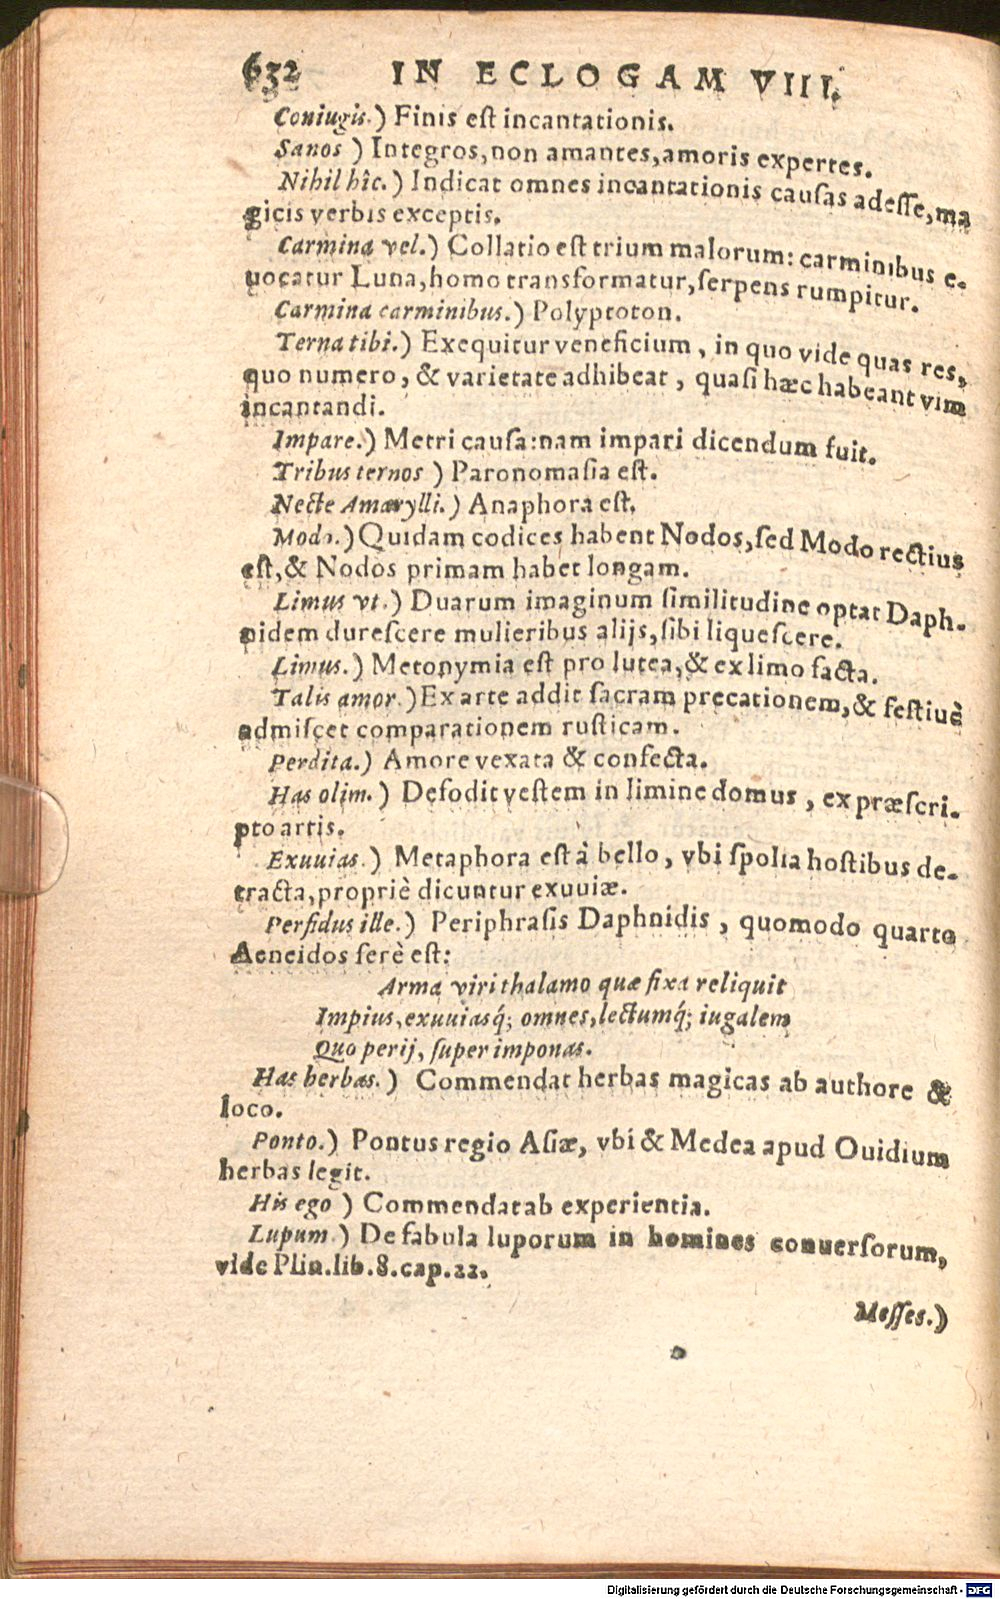 632 IN ECLOGAM VIII.
Coniugis.) Finis est incantationis.
Sanos ) Integros, non amantes, amoris expertes.
Nihil hîc.) Indicat omnes incantationis causas adesse, ma
gicis verbis exceptis.
Carmina vel.) Collatio est trium malorum: carminibus e-
uocatur Luna, homo transformatur, serpens rumpitur.
Carmina carminibus.) Polyptoton.
Terna tibi.) Exequitur veneficium, in quo vide quas res,
quo numero, & varietate adhibeat, quasi hæc habeant vim
incantandi.
Impare.) Metri causa: nam impari dicendum fuit.
Tribus ternos ) Paronomasia est.
Necte Amarylli.) Anaphora est.
Modo.) Quidam codices habent Nodos, sed Modo rectius
est, & Nodos primam habet longam.
Limus vt.) Duarum imaginum similitudine optat Daph-
nidem durescere mulieribus alijs, sibi liquescere.
Limus.) Metonymia est pro lutea, & ex limo facta.
Talis amor.) Ex arte addit sacram precationem, & festiuè
admiscet comparationem rusticam.
Perdita.) Amore vexata & confecta.
Has olim.) Defodit vestem in limine domus, ex præscri-
pto artis.
Exuuias.) Metaphora est à bello, vbi spolia hostibus de-
tracta, propriè dicuntur exuuiæ.
Perfidus ille.) Periphrasis Daphnidis, quomodo quarto
Aeneidos ferè est:
Arma viri thalamo quæ fixa reliquit
Impius, exuuiasq́; omnes, lectumq́; iugalem
Quo perij, super imponas.
Has herbas.) Commendat herbas magicas ab authore &
loco.
Ponto.) Pontus regio Asiæ, vbi & Medea apud Ouidium
herbas legit.
His ego ) Commendat ab experientia.
Lupum.) De fabula luporum in homines conuersorum,
vide Plin. lib. 8. cap. 22.
Messes.)
Digitalisierung gefördert durch die Deutsche Forschungsgemeinschaft - DFG